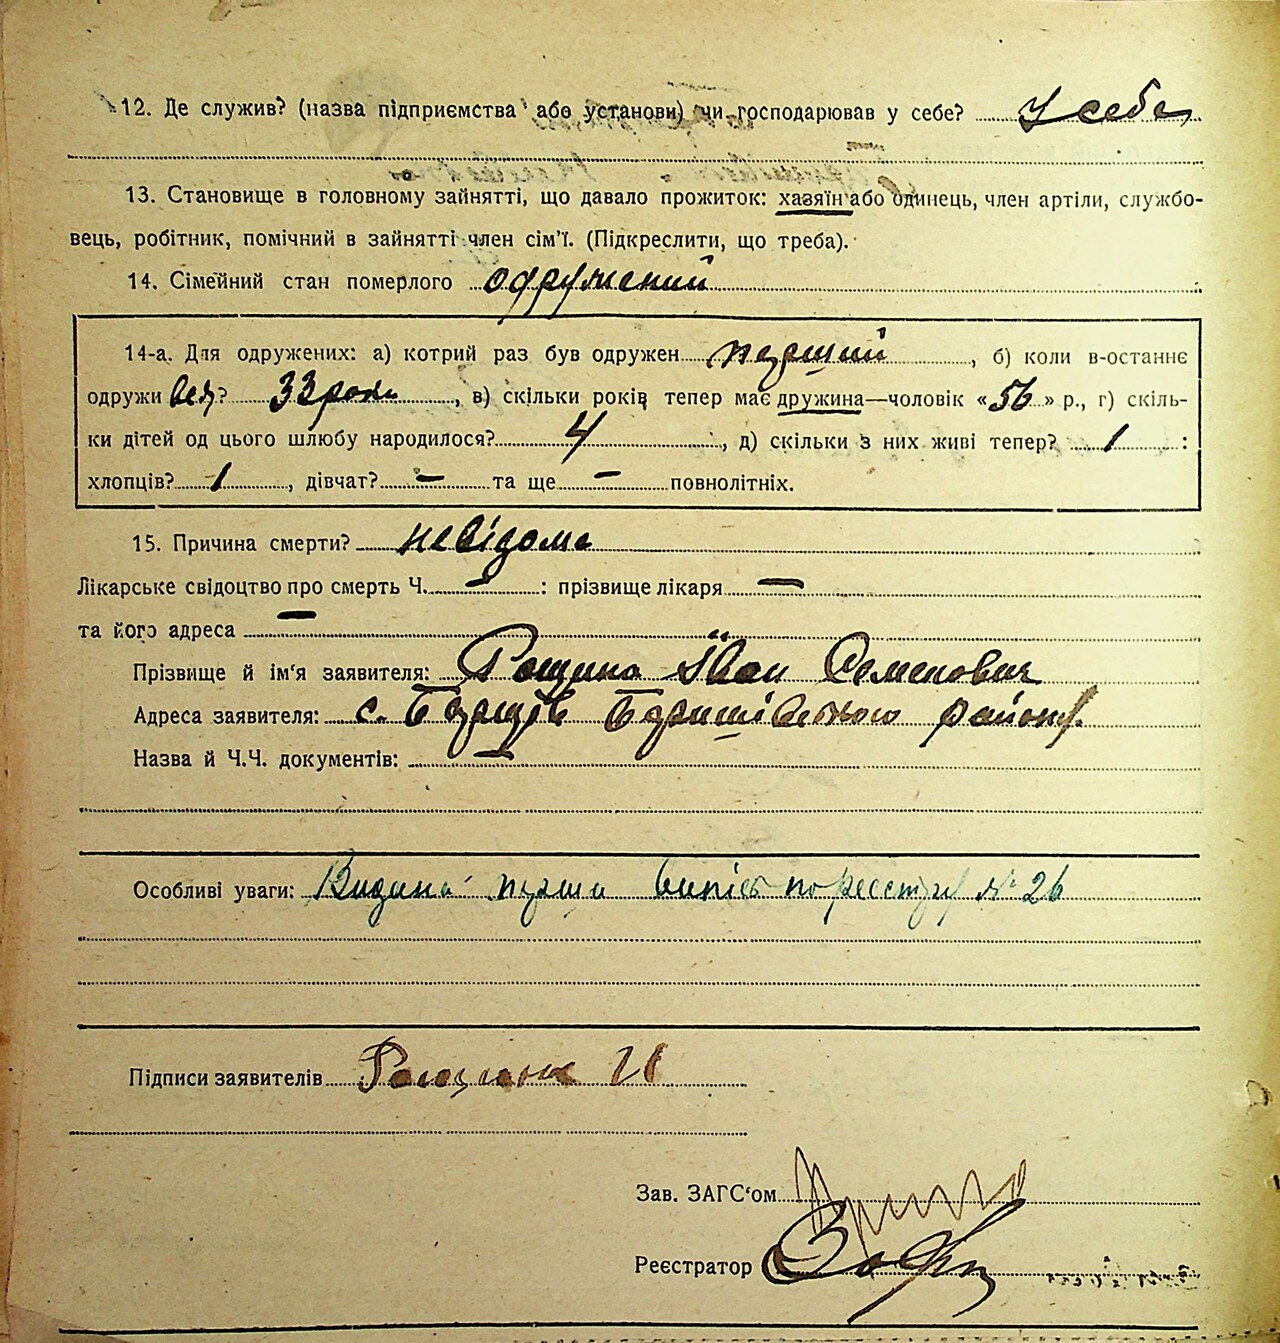 12. Де служив? (назва підприємства або установи) чи господарював у себе? У себе
13. Становище в головному зайнятті, що давало прожиток: хазяїн або одинець, член артіли, службо-
вець, робітник, помічний в зайнятті член сім'ї. (Підкреслити, що треба).
14. Сімейний стан померлого одружений
14-а. Для одружених: а) котрий раз був одружен перший, б) коли в-останнє
одружився? 33 роки, в) скільки років тепер має дружина—чоловік «56» р., г) скіль-
ки дітей од цього шлюбу народилося? 4, д) скільки з них живі тепер? 1 :
хлопців? 1, дівчат? — та ще — повнолітніх.
15. Причина смерти? невідома
Лікарське свідоцтво про смерть Ч. — : прізвище лікаря —
та його адреса —
Прізвище й ім'я заявителя: Рощина Іван Семенович
Адреса заявителя: с. Борщів Баришівського району
Назва й Ч.Ч. документів: —
Особливі уваги: Видана перша випись по реєстру № 26
Підписи заявителів Рощина И
Зав. ЗАГС'ом
Реєстратор